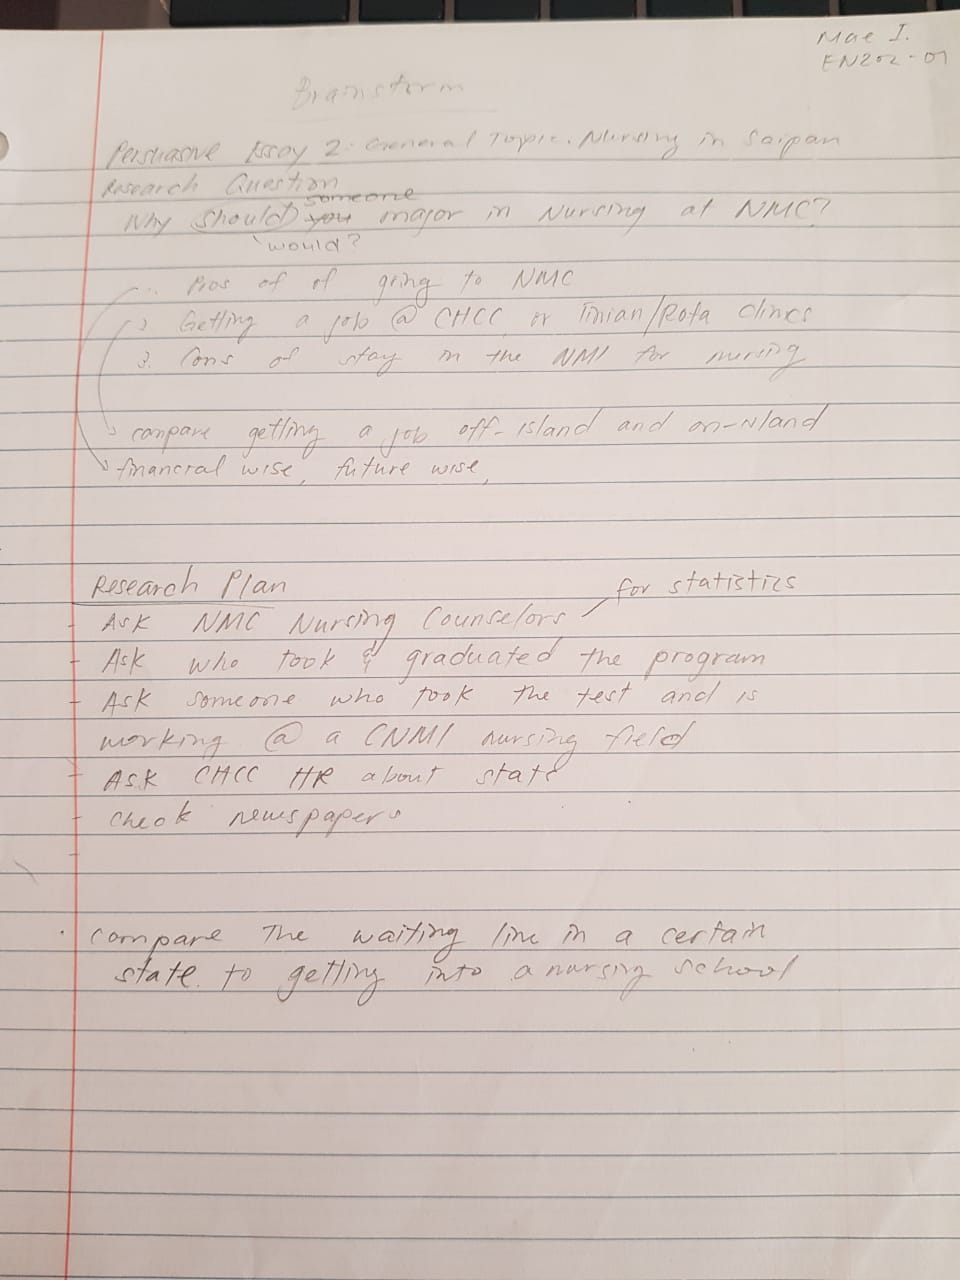 Mae I.
EN202-01
Brainstorm
Persuasive Essay 2: General Topic: Nursing in Saipan
Research Question
someone
Why should you major in Nursing at NMC?
would?
1. Pros of of going to NMC
2 Getting a job @ CHCC or Tinian/Rota clincs
3. Cons of stay in the NMI for nursing
compare getting a job off-island and on-island
financial wise, future wise,
Research Plan
for statistics
- Ask NMC Nursing Counselors
- Ask who took & graduated the program
- Ask someone who took the test and is
working @ a CNMI nursing field
- Ask CHCC HR about stats
- check newspapers
-
· compare The waiting line in a certain
state. to getting into a nursing school